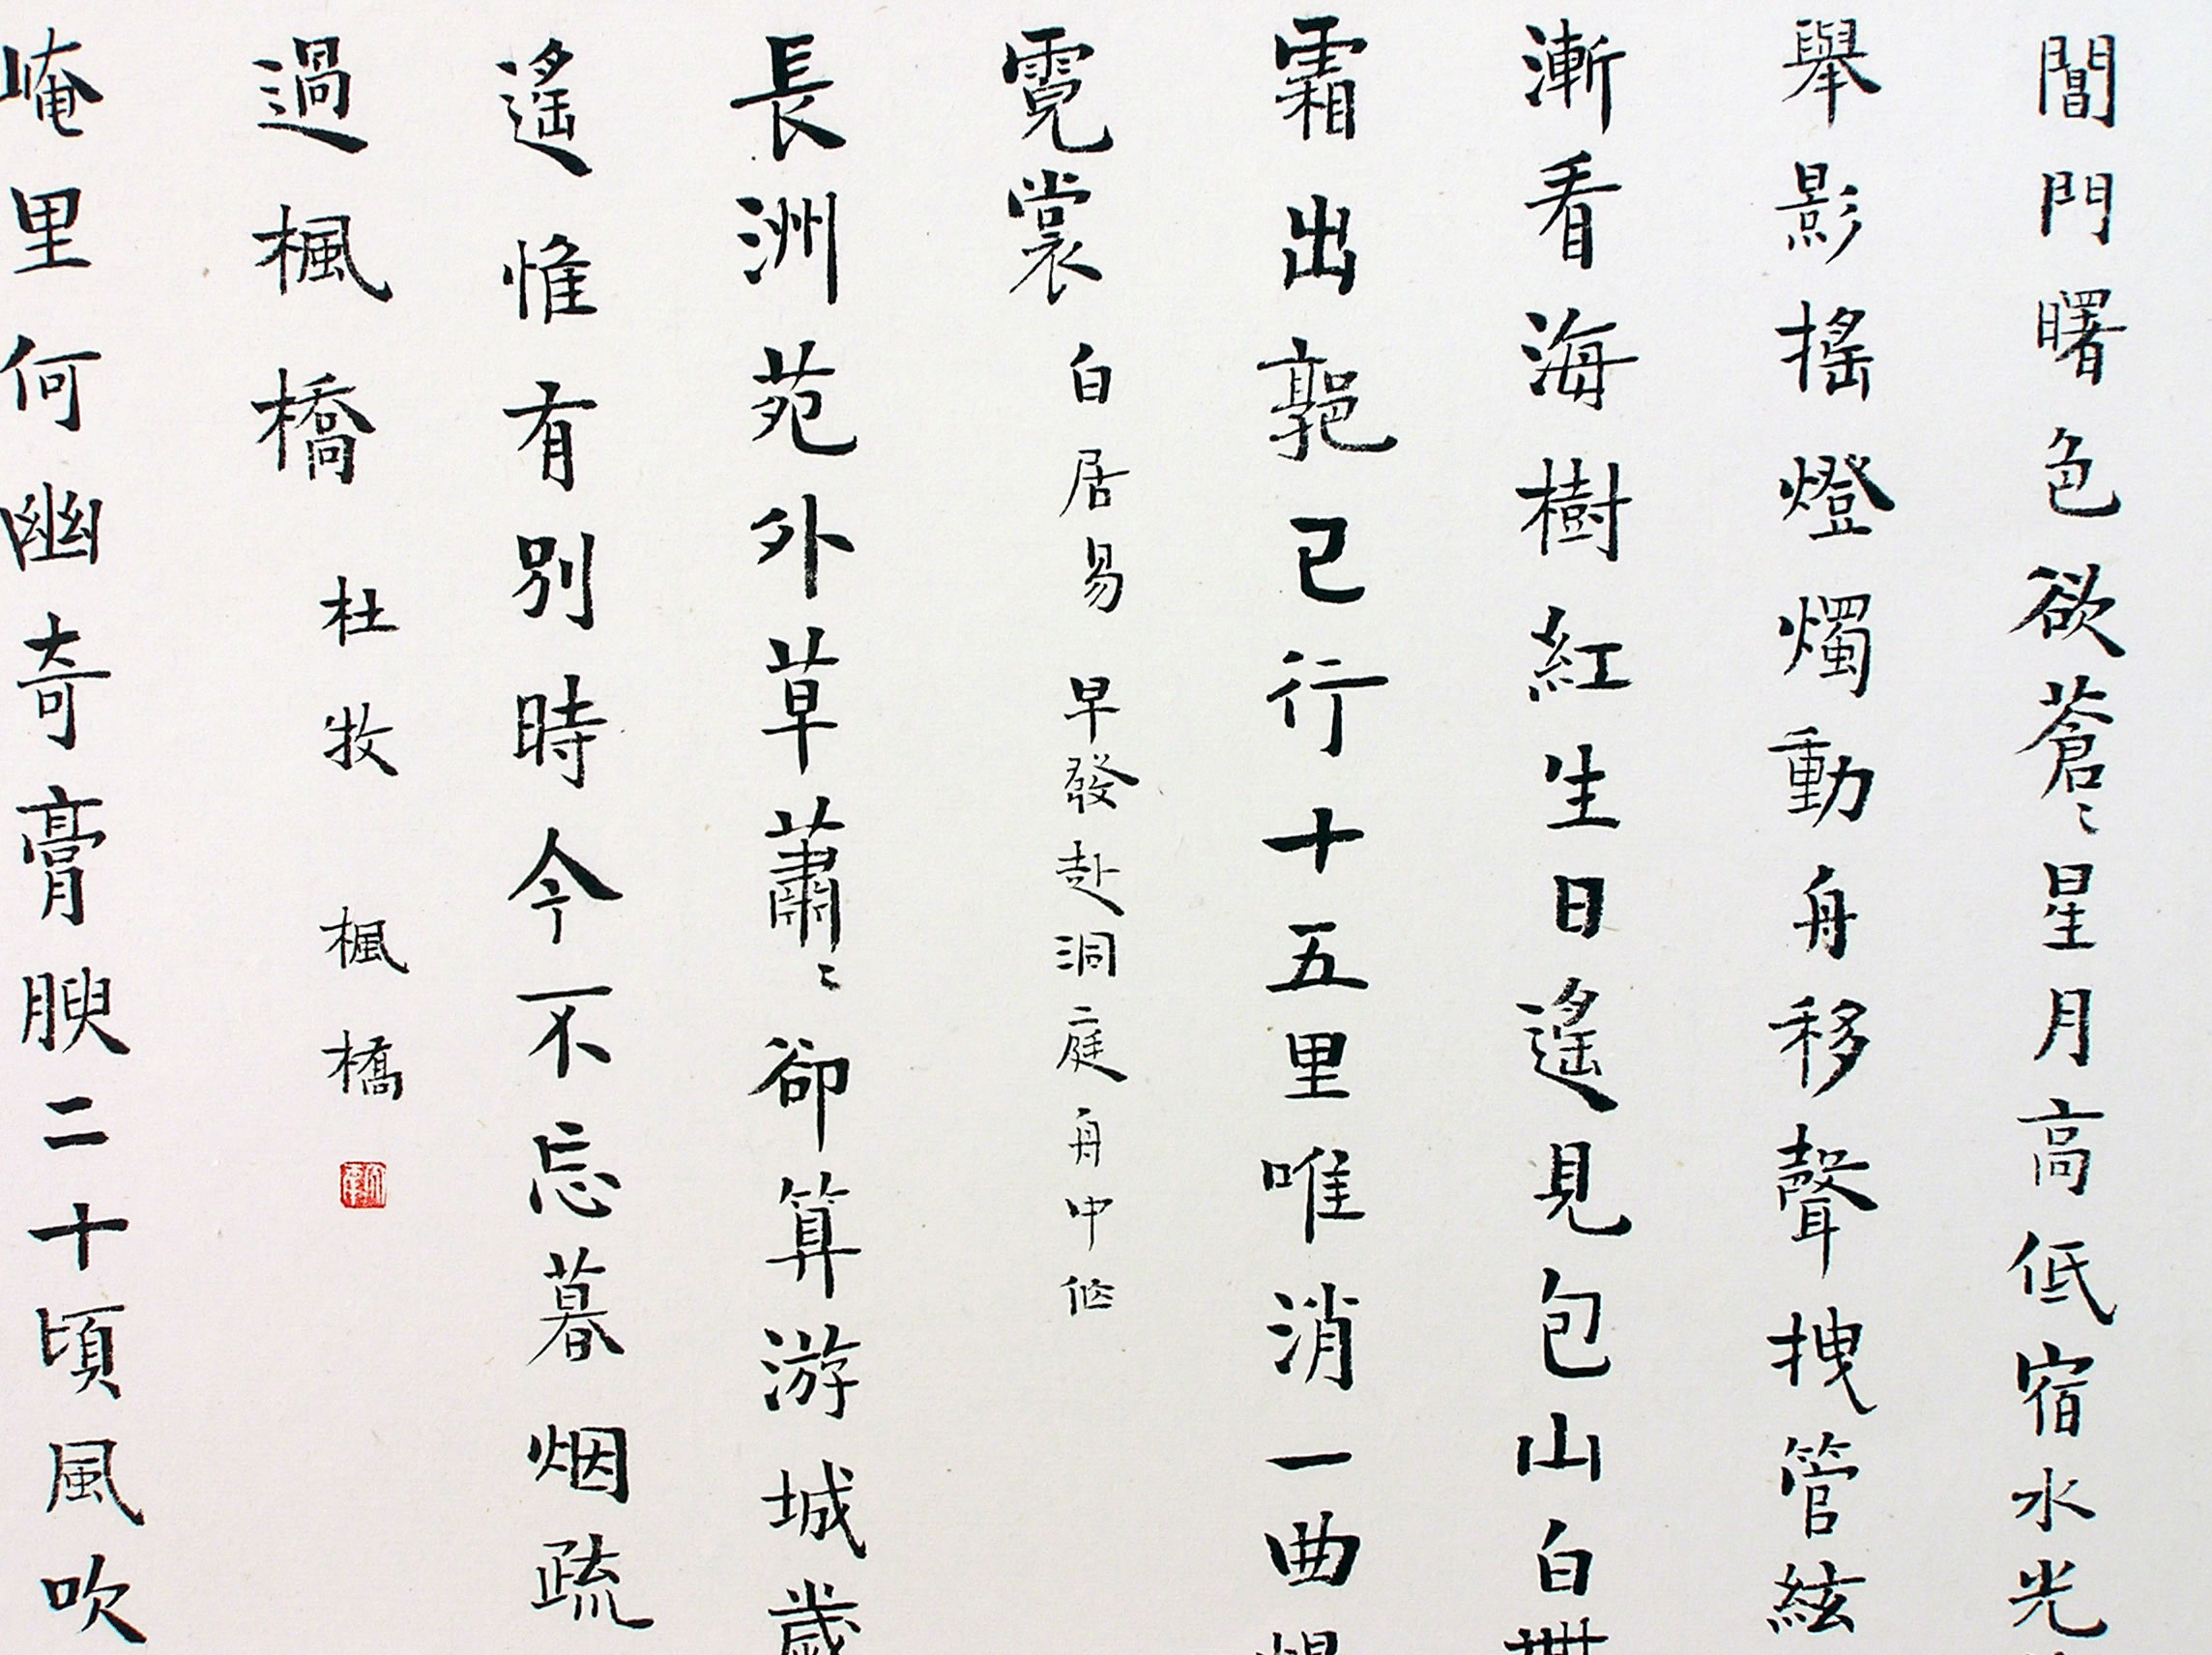 閶門曙色欲蒼〻星月高低宿水光
舉影搖燈燭動舟移聲拽管絃
漸看海樹紅生日遙見包山白
霜出郭已行十五里唯消一曲
霓裳 白居易 早發赴洞庭舟中作
長洲苑外草蕭〻卻算游城歲
遙惟有別時今不忘暮烟疏
過楓橋 杜牧 楓橋
崦里何幽奇膏腴二十頃風吹